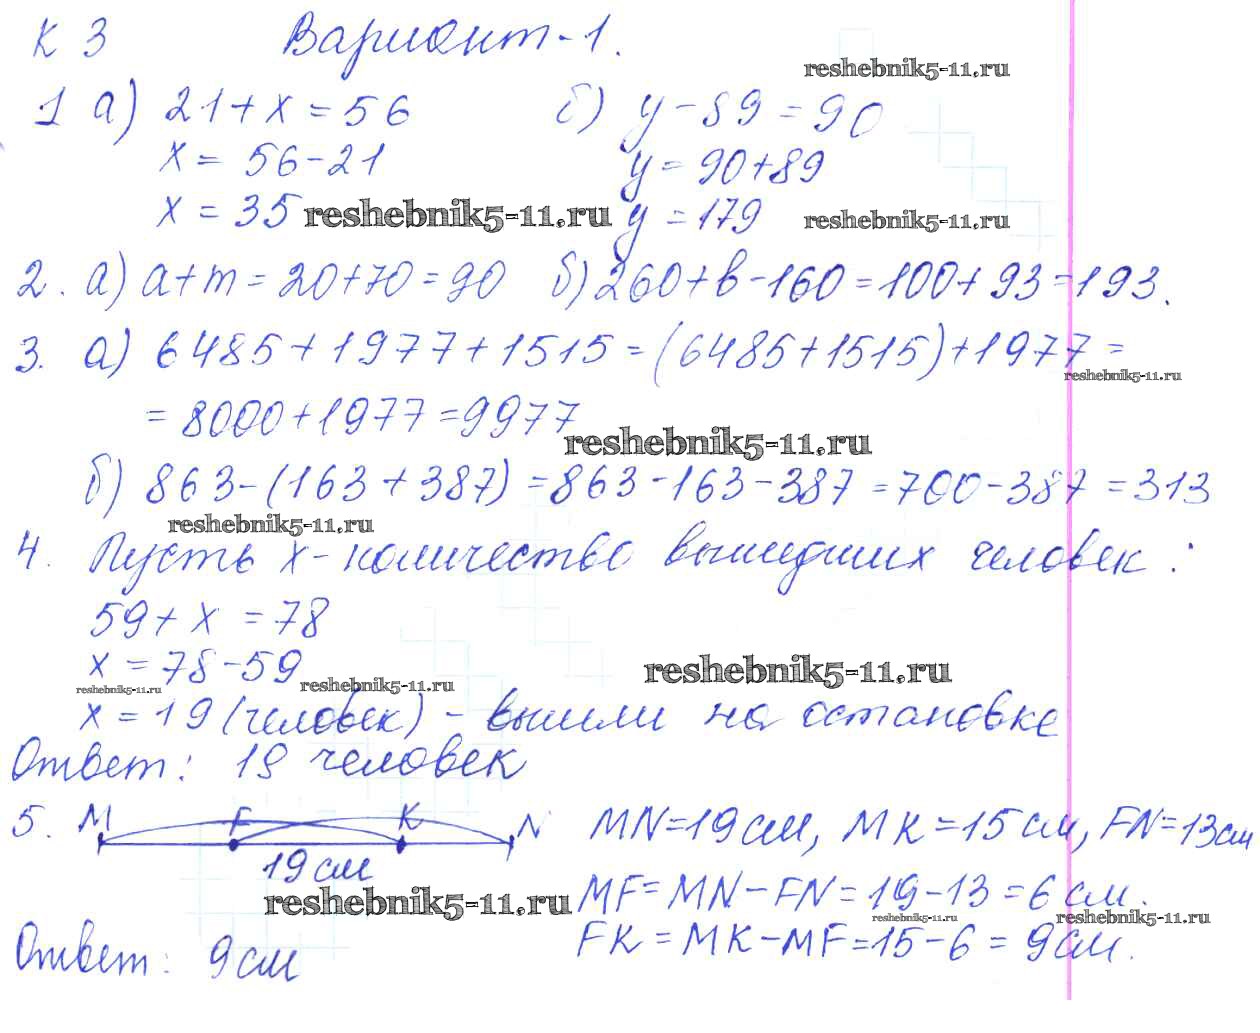 К 3 Вариант-1.
reshebnik5-11.ru
1 а) 21+x=56 б) y-89=90
x= 56-21 y=90+89
x=35 reshebnik5-11.ru y=179 reshebnik5-11.ru
2. а) a+m=20+70=90 б) 260+b-160=100+93=193.
3. а) 6485+1977+1515=(6485+1515)+1977=
reshebnik5-11.ru
=8000+1977=9977
reshebnik5-11.ru
б) 863-(163+387)=863-163-387=700-387=313
reshebnik5-11.ru
4. Пусть x-количество вышедших человек:
59+x=78
x=78-59
reshebnik5-11.ru reshebnik5-11.ru reshebnik5-11.ru
x=19 (человек) - вышли на остановке
Ответ: 19 человек
5. M F K N MN=19см, MK=15см, FN=13см
19см
MF=MN-FN=19-13=6см.
reshebnik5-11.ru reshebnik5-11.ru reshebnik5-11.ru
FK=MK-MF=15-6=9см.
Ответ: 9см